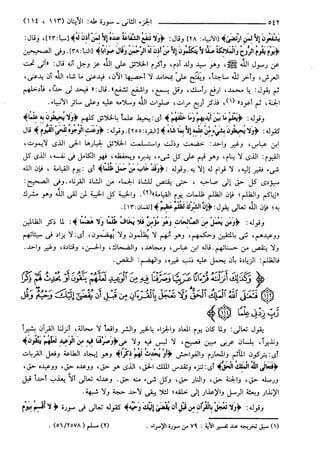 ٥٤٢ الجزء الثاني - سورة طه: الآيتان (١١٣، ١١٤)
يَشْفَعُونَ إِلَّا لِمَنِ ارْتَضَىٰ﴾ [الأنبياء: ٢٨] وقال: ﴿وَلَا تَنفَعُ الشَّفَاعَةُ عِندَهُ إِلَّا لِمَنْ أَذِنَ لَهُ﴾ [سبأ: ٢٣]، وقال:
﴿يَوْمَ يَقُومُ الرُّوحُ وَالْمَلَائِكَةُ صَفًّا لَّا يَتَكَلَّمُونَ إِلَّا مَنْ أَذِنَ لَهُ الرَّحْمَٰنُ وَقَالَ صَوَابًا﴾ [النبأ: ٣٨]. وفي الصحيحين
عن رسول الله ﷺ، وهو سيد ولد آدم، وأكرم الخلائق على الله عز وجل أنه قال: «آتي تحت
العرش، وأخر لله ساجداً، ويفتح عليّ بمحامد لا أحصيها الآن، فيدعني ما شاء الله أن يدعني،
ثم يقول: يا محمد، ارفع رأسك، وقل يسمع، واشفع تشفع». قال: «فيحد لي حداً، فأدخلهم
الجنة، ثم أعود» (١)، فذكر أربع مرات، صلوات الله وسلامه عليه وعلى سائر الأنبياء.
وقوله: ﴿يَعْلَمُ مَا بَيْنَ أَيْدِيهِمْ وَمَا خَلْفَهُمْ﴾ أي: يحيط علماً بالخلائق كلهم ﴿وَلَا يُحِيطُونَ بِهِ عِلْمًا﴾
كقوله: ﴿وَلَا يُحِيطُونَ بِشَيْءٍ مِّنْ عِلْمِهِ إِلَّا بِمَا شَاءَ﴾ [البقرة: ٢٥٥]. وقوله: ﴿وَعَنَتِ الْوُجُوهُ لِلْحَيِّ الْقَيُّومِ﴾ قال
ابن عباس، وغير واحد: خضعت وذلت واستسلمت الخلائق لجبارها الحي الذي لايموت،
القيوم: الذي لا ينام، وهو قيم على كل شيء، يدبره ويحفظه، فهو الكامل في نفسه، الذي كل
شيء فقير إليه، لا قوام له إلا به. وقوله: ﴿وَقَدْ خَابَ مَنْ حَمَلَ ظُلْمًا﴾ أي: يوم القيامة، فإن الله
سيؤدي كل حق إلى صاحبه، حتى يقتص للشاة الجماء من الشاة القرناء. وفي الصحيح:
«إياكم والظلم، فإن الظلم ظلمات يوم القيامة» (٢). والخيبة كل الخيبة لمن لقي الله وهو مشرك
به؛ فإن الله تعالى يقول: ﴿إِنَّ الشِّرْكَ لَظُلْمٌ عَظِيمٌ﴾ [لقمان: ١٣].
وقوله: ﴿وَمَن يَعْمَلْ مِنَ الصَّالِحَاتِ وَهُوَ مُؤْمِنٌ فَلَا يَخَافُ ظُلْمًا وَلَا هَضْمًا﴾: لما ذكر الظالمين
ووعيدهم، ثنى بالمتقين وحكمهم، وهو أنهم لا يُظلمون ولا يهضمون، أي: لا يزاد في سيئاتهم
ولا ينقص من حسناتهم. قاله ابن عباس، ومجاهد، والضحاك، والحسن، وقتادة، وغير واحد.
فالظلم: الزيادة بأن يحمل عليه ذنب غيره، والهضم: النقص.
﴿وَكَذَٰلِكَ أَنزَلْنَاهُ قُرْآنًا عَرَبِيًّا وَصَرَّفْنَا فِيهِ مِنَ الْوَعِيدِ لَعَلَّهُمْ يَتَّقُونَ أَوْ يُحْدِثُ لَهُمْ ذِكْرًا
(١١٣) فَتَعَالَى اللَّهُ الْمَلِكُ الْحَقُّ وَلَا تَعْجَلْ بِالْقُرْآنِ مِن قَبْلِ أَن يُقْضَىٰ إِلَيْكَ وَحْيُهُ وَقُل
رَّبِّ زِدْنِي عِلْمًا (١١٤)﴾
يقول تعالى: ولما كان يوم المعاد والجزاء بالخير والشر واقعاً لا محالة، أنزلنا القرآن بشيراً
ونذيراً، بلسان عربي مبين فصيح، لا لبس فيه ولا عي ﴿وَصَرَّفْنَا فِيهِ مِنَ الْوَعِيدِ لَعَلَّهُمْ يَتَّقُونَ﴾
أي: يتركون المآثم والمحارم والفواحش ﴿أَوْ يُحْدِثُ لَهُمْ ذِكْرًا﴾ وهو إيجاد الطاعة وفعل القربات
﴿فَتَعَالَى اللَّهُ الْمَلِكُ الْحَقُّ﴾ أي: تنزه وتقدس الملك الحق، الذي هو حق، ووعده حق، ووعيده حق،
ورسله حق، والجنة حق، والنار حق، وكل شيء منه حق. وعدله تعالى ألا يعذب أحداً قبل
الإنذار وبعثة الرسل والإعذار إلى خلقه؛ لئلا يبقى لأحد حجة ولا شبهة.
وقوله: ﴿وَلَا تَعْجَلْ بِالْقُرْآنِ مِن قَبْلِ أَن يُقْضَىٰ إِلَيْكَ وَحْيُهُ﴾ كقوله تعالى في سورة ﴿لَا أُقْسِمُ بِيَوْمِ
(١) سبق تخريجه عند تفسير الآية: ٧٩ من سورة الإسراء. (٢) مسلم (٢٥٧٨/٥٦).